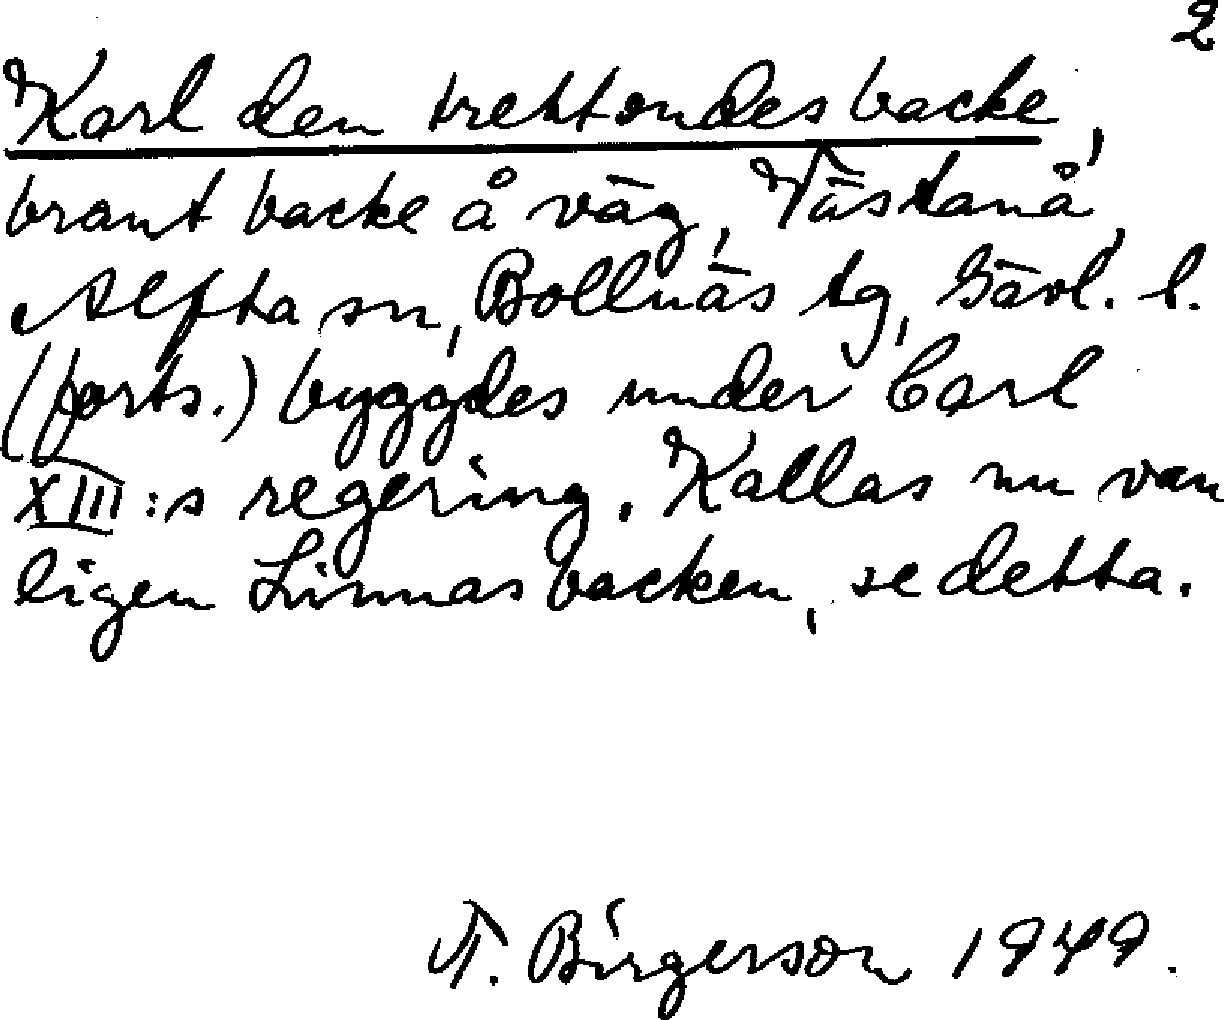 2
Karl den trettondes backe,
brant backe å väg, Västanå,
Alfta sn, Bollnäs tg, Gävl. l.
(forts.) byggdes under Carl
XIII:s regering. Kallas nu van
ligen Linnas backen, se detta.
N. Birgerson 1949.